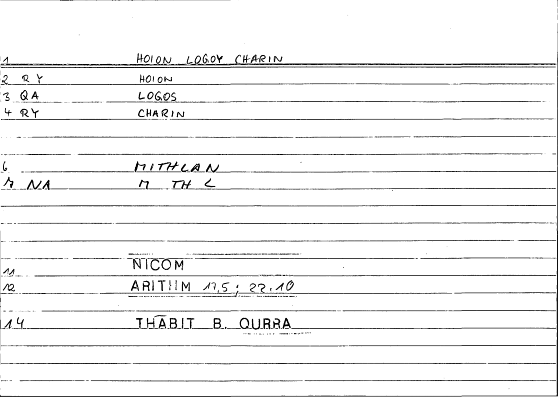 1 HOION LOGOY CHARIN
2 RY HOION
3 QA LOGOS
4 RY CHARIN
6 MITHLAN
7 NA M TH L
11 NICOM
12 ARITHM 17,5; 22.10
14 THĀBIT B. QURRA